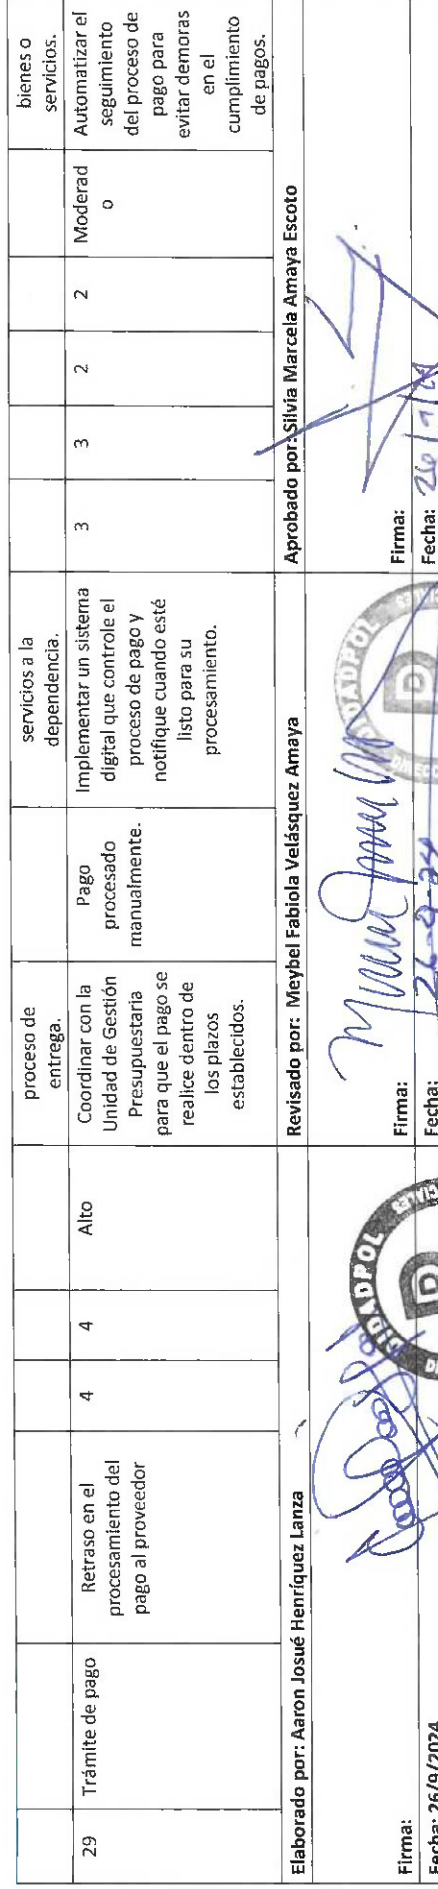 proceso de
entrega.
servicios a la
dependencia.
bienes o
servicios.
29
Trámite de pago
Retraso en el
procesamiento del
pago al proveedor
4
4
Alto
Coordinar con la
Unidad de Gestión
Presupuestaria
para que el pago se
realice dentro de
los plazos
establecidos.
Pago
procesado
manualmente.
Implementar un sistema
digital que controle el
proceso de pago y
notifique cuando esté
listo para su
procesamiento.
3
3
2
2
Moderad
o
Automatizar el
seguimiento
del proceso de
pago para
evitar demoras
en el
cumplimiento
de pagos.
Elaborado por: Aaron Josué Henríquez Lanza
Revisado por: Meybel Fabiola Velásquez Amaya
Aprobado por: Silvia Marcela Amaya Escoto
Firma:
DIDADPOL
Firma:
DIDADPOL
Firma:
Fecha: 26/9/2024
Fecha: 26-9-24
Fecha: 26/9/24